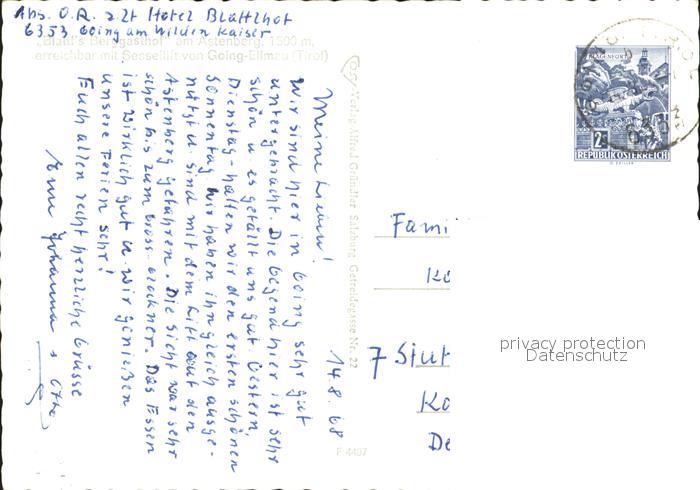 Abs. O.R. z.Zt Hotel Blattlhof
6353 Going am Wilden Kaiser
„Blattl's Berggasthof" am Astenberg, 1500 m,
erreichbar mit Sessellift von Going-Ellmau (Tirol)
14.8.68
Meine Lieben!
Wir sind hier in Going sehr gut
untergebracht. Die Gegend hier ist sehr
schön u es gefällt uns gut. Gestern,
Dienstag - halten wir den ersten schönen
Sonnentag wir haben ihn gleich ausge-
nützt u. sind mit dem Lift auf den
Astenberg gefahren. Die Sicht war sehr
schön bis zum Gross-Glockner. Das Essen
ist wirklich gut u. wir genießen
unsere Ferien sehr!
Euch allen recht herzliche Grüsse
Eure Johanna s Otto
Cosy-Verlag Alfred Gründler Salzburg Getreidegasse Nr. 22
F 4407
KLAGENFURT
2S
REPUBLIK ÖSTERREICH
Fami
Ko
7 Stut
Ko
De
privacy protection
Datenschutz